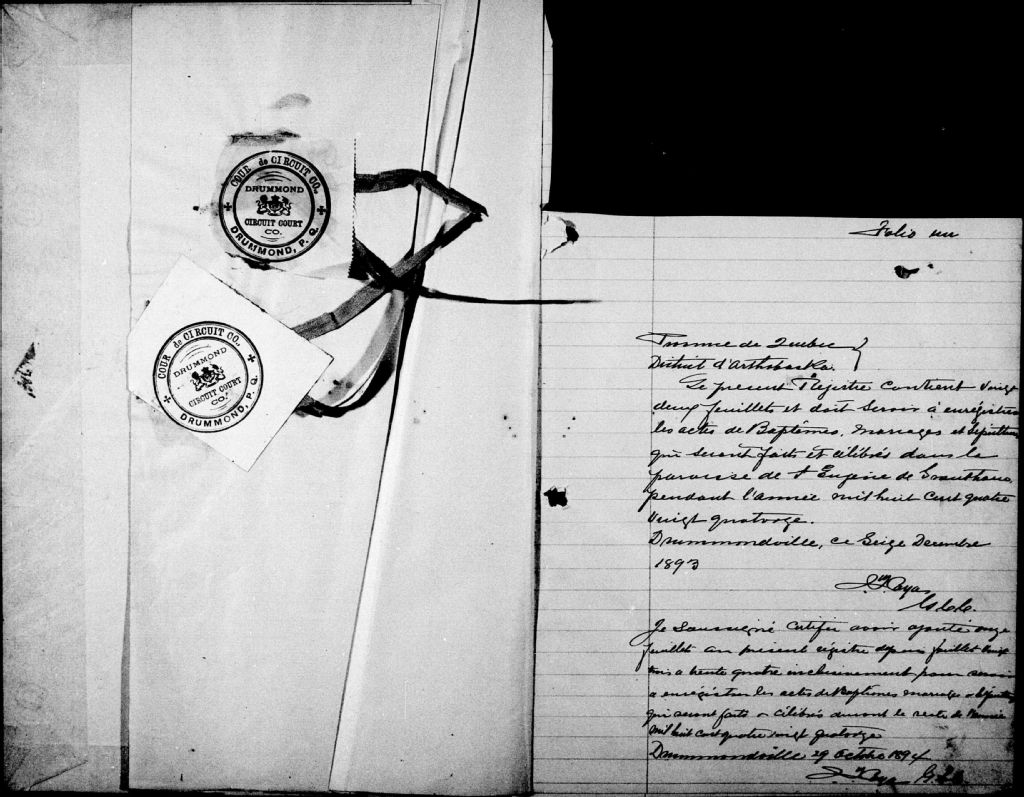 COUR de CIRCUIT CO.
DRUMMOND
CIRCUIT COURT
CO.
DRUMMOND, P. Q.
COUR de CIRCUIT CO.
DRUMMOND
CIRCUIT COURT
CO.
DRUMMOND, P. Q.
Folio un
Province de Québec
District d'Arthabaska.
Le présent Régistre contient vingt
deux feuillets et doit servir à enrégistrer
les actes de Baptêmes, mariages et sépultures
qui seront faits et célébrés dans la
paroisse de St Eugène de Grantham,
pendant l'année mil huit cent quatre
vingt quatorze.
Drummondville, ce Seize Decembre
1893
Je soussigné certifie avoir ajouté onze
feuillets au présent régistre depuis feuillet vingt
trois a trente quatre inclusivement pour servir
a enrégistrer les actes de Baptêmes mariage & sépulture
qui seront faits & célébrés durant le reste de l'année
mil huit cent quatre vingt quatorze
Drummondville 29 Octobre 1894